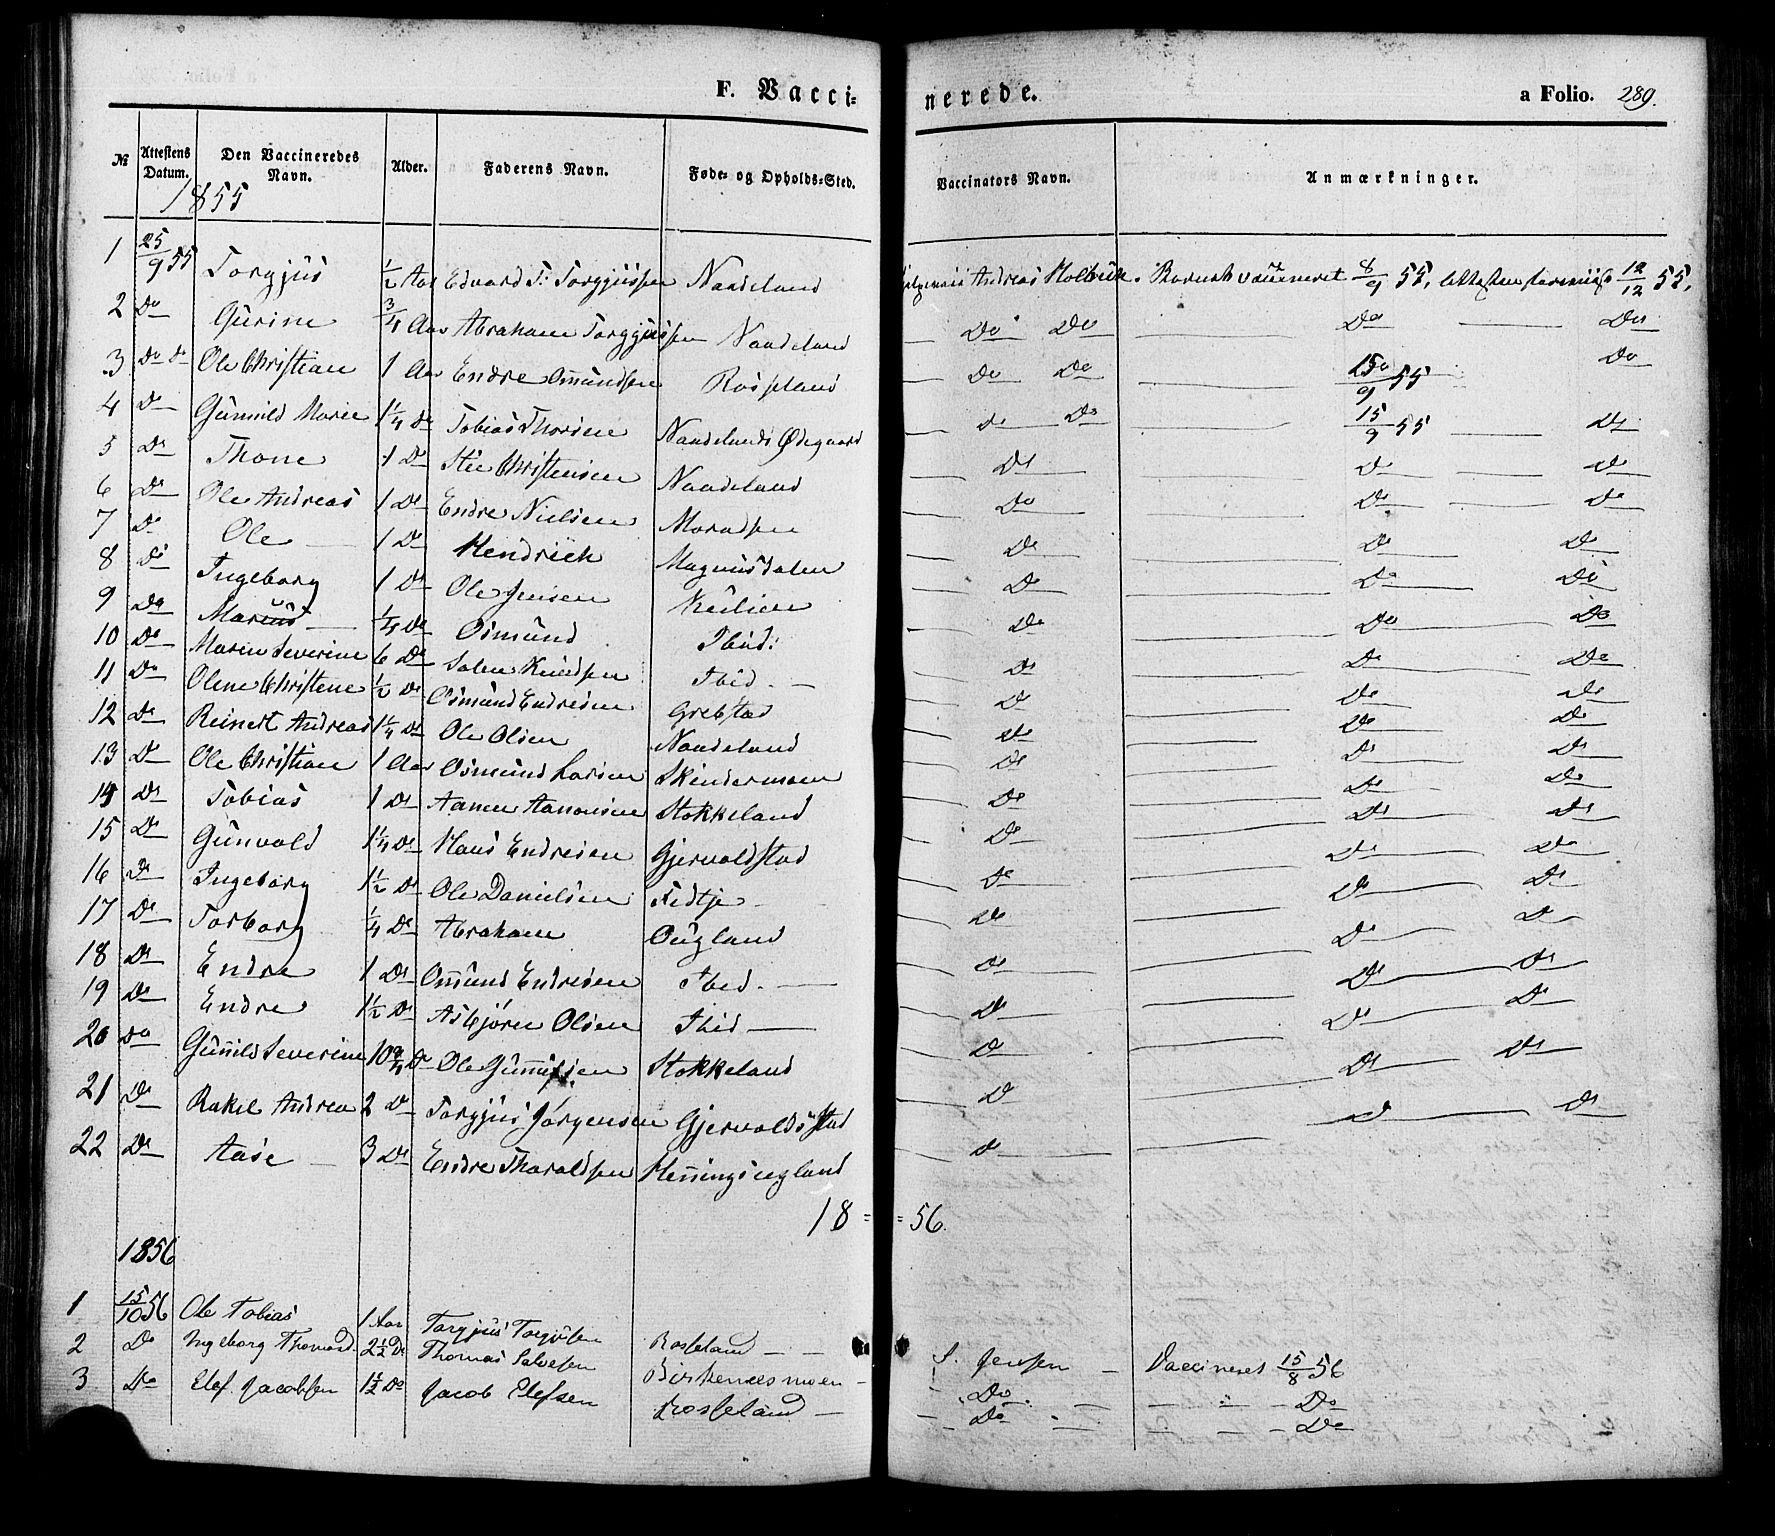 F. Vacci= nerede. a Folio. 289.
№ Attestens Datum. Den Vaccineredes Navn. Alder. Faderens Navn. Føde- og Opholds-Sted. Vaccinators Navn. Anmærkninger.
1855
1 25/9 55 Torgjus 1/2 Aar Edvard T: Torgjussen Naadeland Andreas Holbæk. Barnet vaccineret 8/9 55, 12/12 55,
2 Do Gurine 3/4 Aar Abraham Torgjussen Naadeland Do Do Do Do
3 Do Do Ole Christian 1 Aar Endre Omundsen Rosseland Do Do 15/9 55 Do
4 Do Gunnild Marie 1 1/4 Do Tobias Thorsen Naadelands Ødegaard Do Do 15/9 55 Do
5 Do Thone 1 Do Stie Christensen Naadeland Do Do Do
6 Do Ole Andreas 1 Do Endre Nielsen Do Do Do
7 Do Ole 1 Do Hendrich Magnusdalen Do Do Do
8 Do Ingeborg 1 Do Ole Jensen Do Do Do
9 Do Marcus 1/4 Do Osmund Ibid: Do Do Do
10 Do Maren Severine 6 Do Salve Knudsen Ibid. Do Do Do
11 Do Olene Christene 1/2 Do Osmund Endresen Grebstad Do Do Do
12 Do Reinert Andreas 1 1/4 Do Ole Olsen Naadeland Do Do Do
13 Do Ole Christian 1 Aar Osmund Larsen Skindermoen Do Do Do
14 Do Tobias 1 Do Aanen Aanonsen Stokkeland Do Do Do
15 Do Gunvald 1 1/4 Do Hans Endresen Gjervoldstad Do Do Do
16 Do Ingeborg 1 1/2 Do Ole Danielsen Fidtje Do Do Do
17 Do Torborg 1/4 Do Abraham Ougland Do Do Do
18 Do Endre 1 Do Omund Endresen Ibid. Do Do Do
19 Do Endre 1 1/2 Do Asbjøren Olsen Ibid Do Do Do
20 Do Gunnild Severine 10 3/4 Do Ole Gunnufsen Stokkeland Do Do Do
21 Do Rakel Andrea 2 Do Torgjus Jørgensen Gjervoldsstad Do Do Do
22 Do Aase 3 Do Endre Tharaldsen Do Do Do
18 = = 56.
1856
1 15/10 56 Ole Tobias 1 Aar Torgjus Torgusen Rosseland S. Jensen Vaccineret 15/8 56
2 Do Ingeborg Thomasd. 2 1/2 Do Thomas Salvesen Birkenesmoen Do Do
3 Do Elef Jacobsen 1 1/2 Do Jacob Elefsen Rosseland Do Do